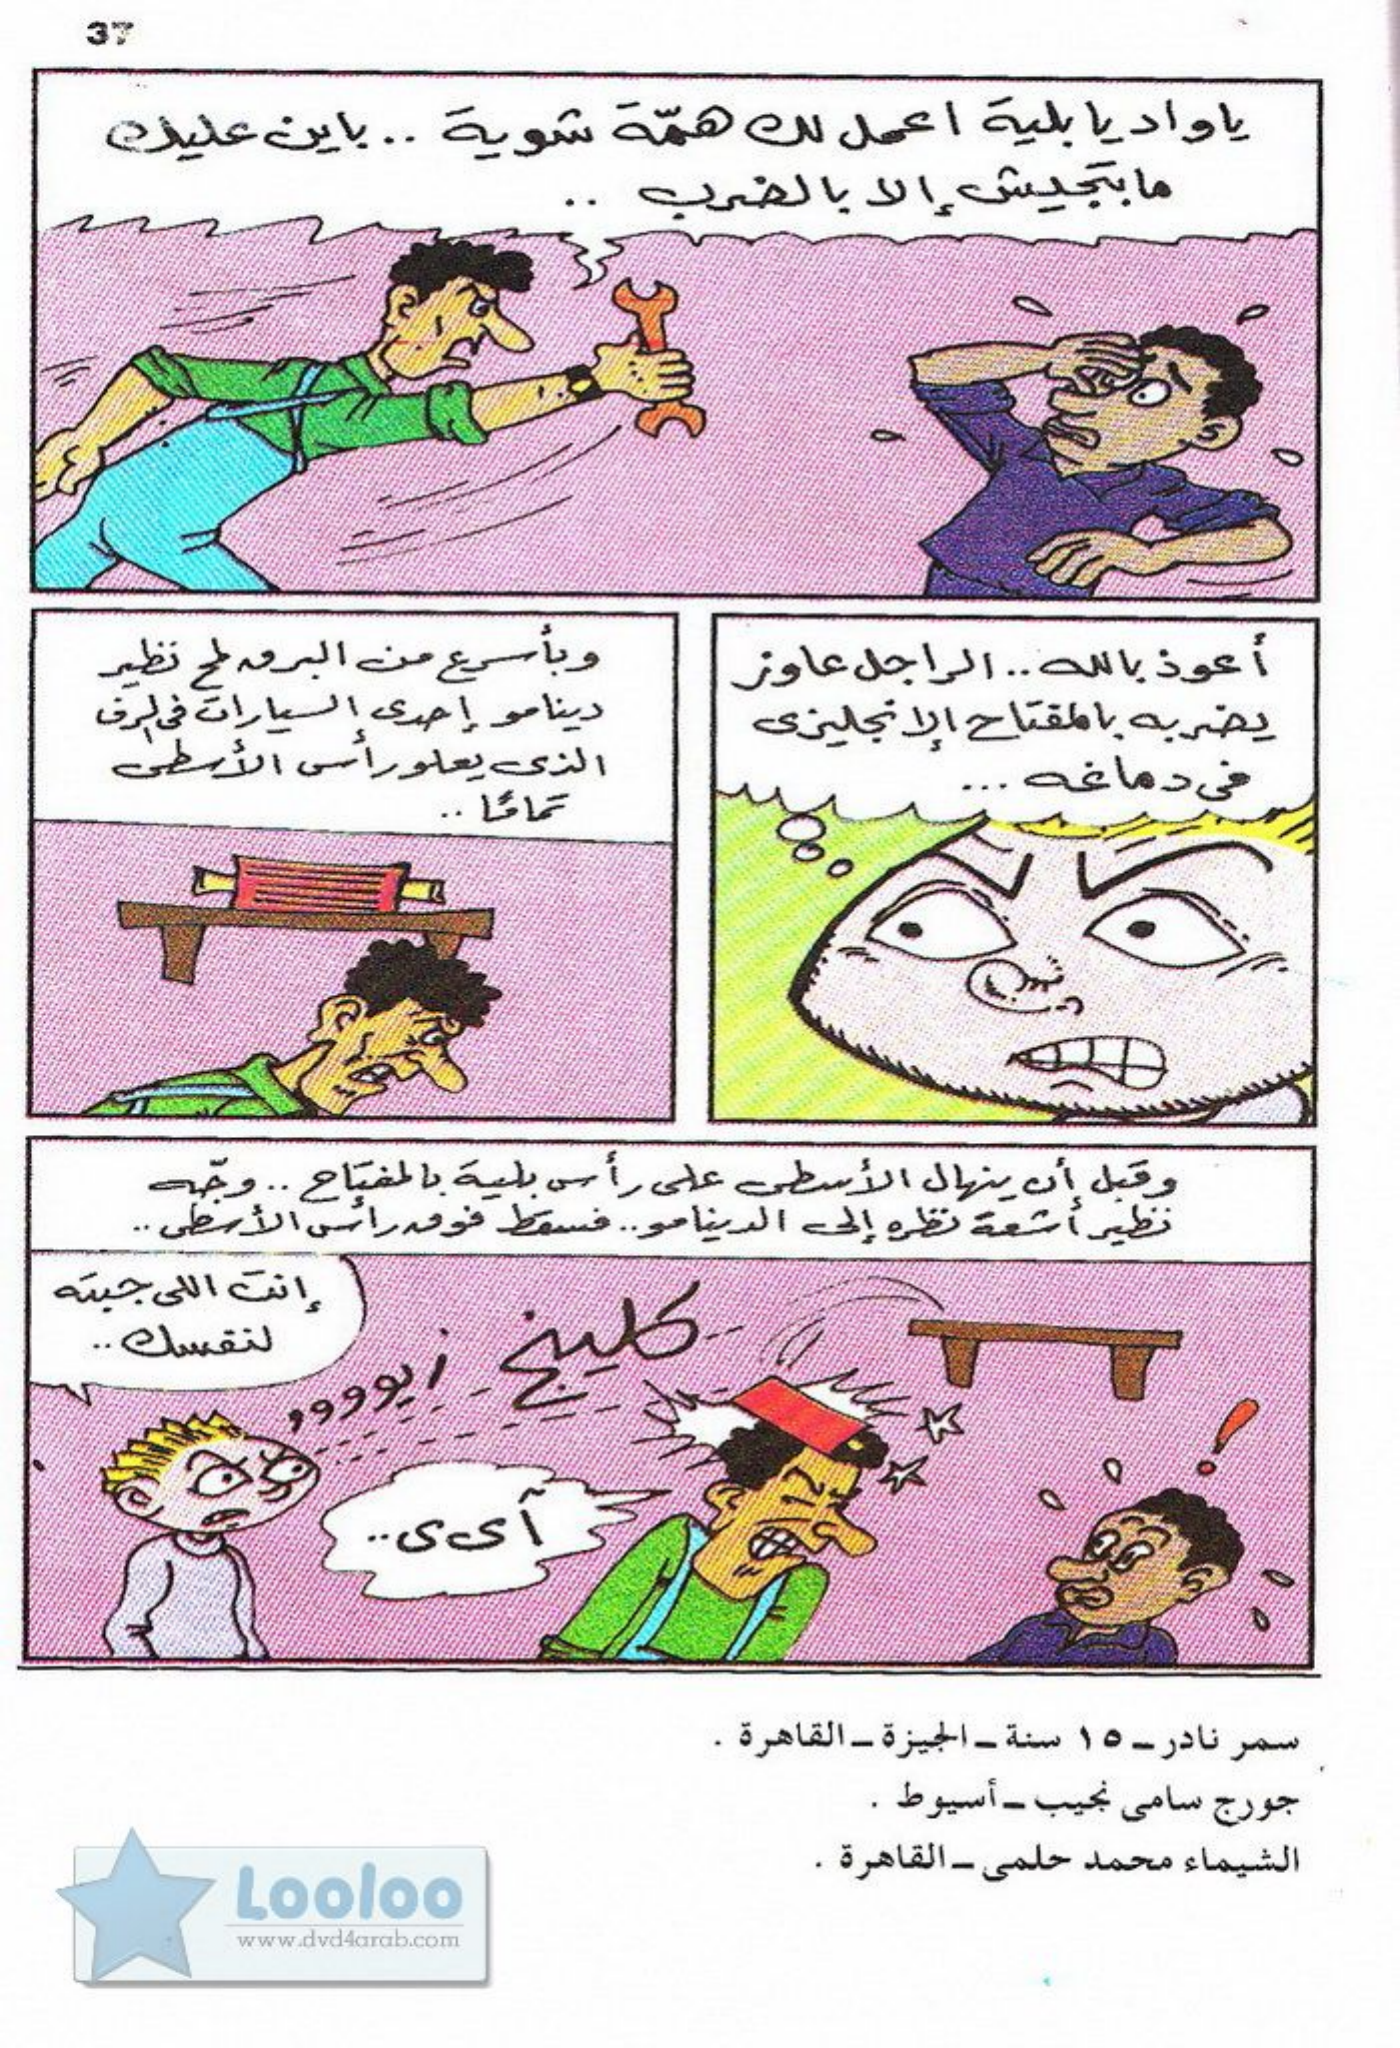 37
ياواد يا بلية اعمل لك همّة شوية .. باين عليك
مابتجيش إلا بالضرب ..
أعوذ بالله .. الراجل عاوز
يضربه بالمفتاح الإنجليزى
فى دماغه ...
وبأسرع من البرق لمح نظير
دينامو إحدى السيارات فى الرف
الذى يعلو رأس الأسطى
تمامًا ..
وقبل أن ينهال الأسطى على رأس بلية بالمفتاح .. وجّه
نظير أشعة نظره إلى الدينامو .. فسقط فوق رأس الأسطى ..
إنت اللى جبته
لنفسك ..
زيوووو
كلينج
آى ى ..
سمر نادر ــ ١٥ سنة ــ الجيزة ــ القاهرة .
جورج سامى نجيب ــ أسيوط .
الشيماء محمد حلمى ــ القاهرة .
Looloo
www.dvd4arab.com